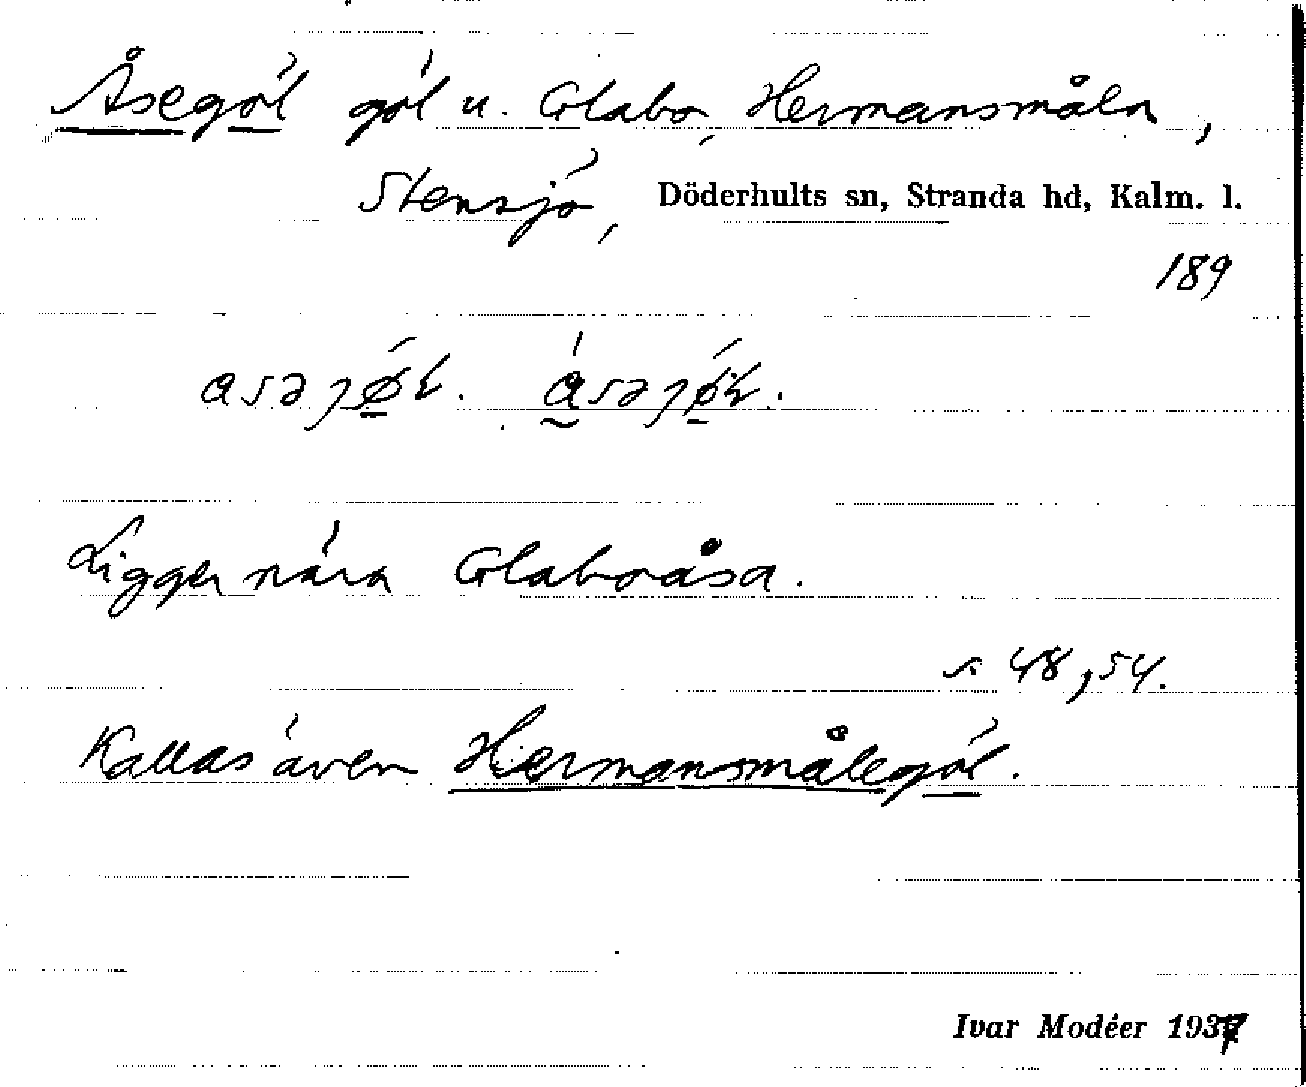 Åsegöl göl u. Glabo, Hermansmåla,
Stensjö, Döderhults sn, Stranda hd, Kalm. l.
189
Ligger nära Glaboåsa.
s. 48, 54.
Kallas även Hermansmålegöl.
Ivar Modéer 1937